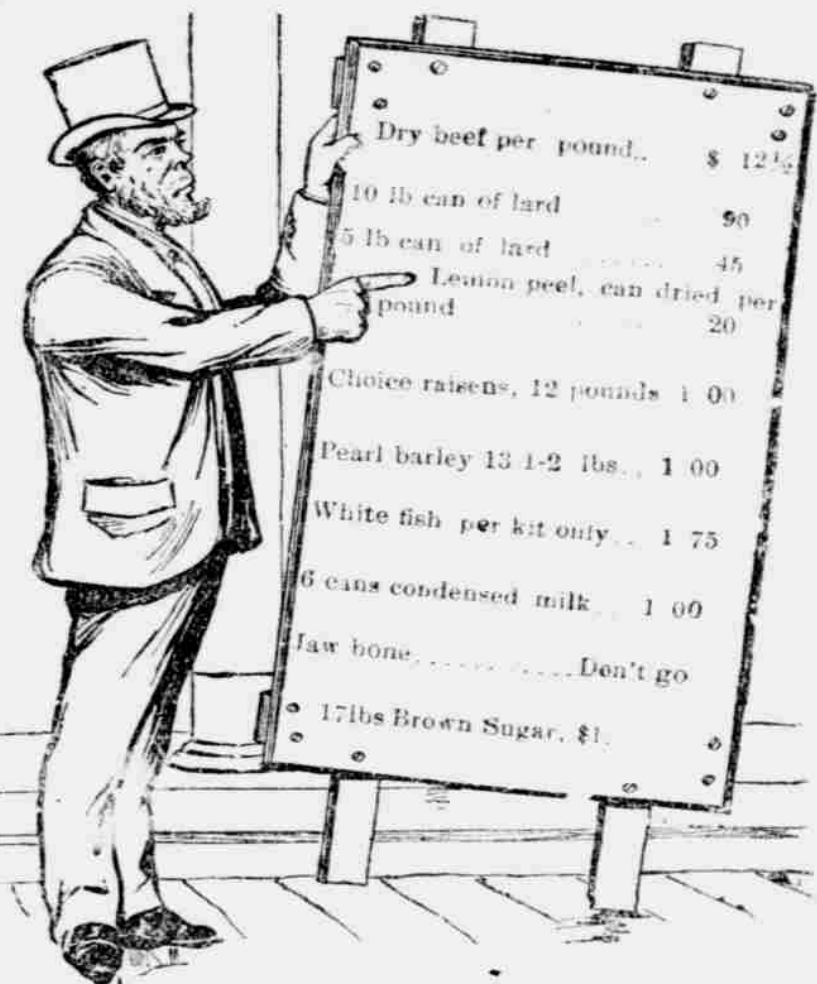 Dry beef per pound.. $ 12½
10 lb can of lard .. 90
5 lb can of lard ....... 45
Lemon peel, can dried per
pound .. .. 20
Choice raisens, 12 pounds 1 00
Pearl barley 13 1-2 lbs.. 1 00
White fish per kit only... 1 75
6 cans condensed milk... 1 00
Jaw bone..............Don't go
17lbs Brown Sugar, $1.